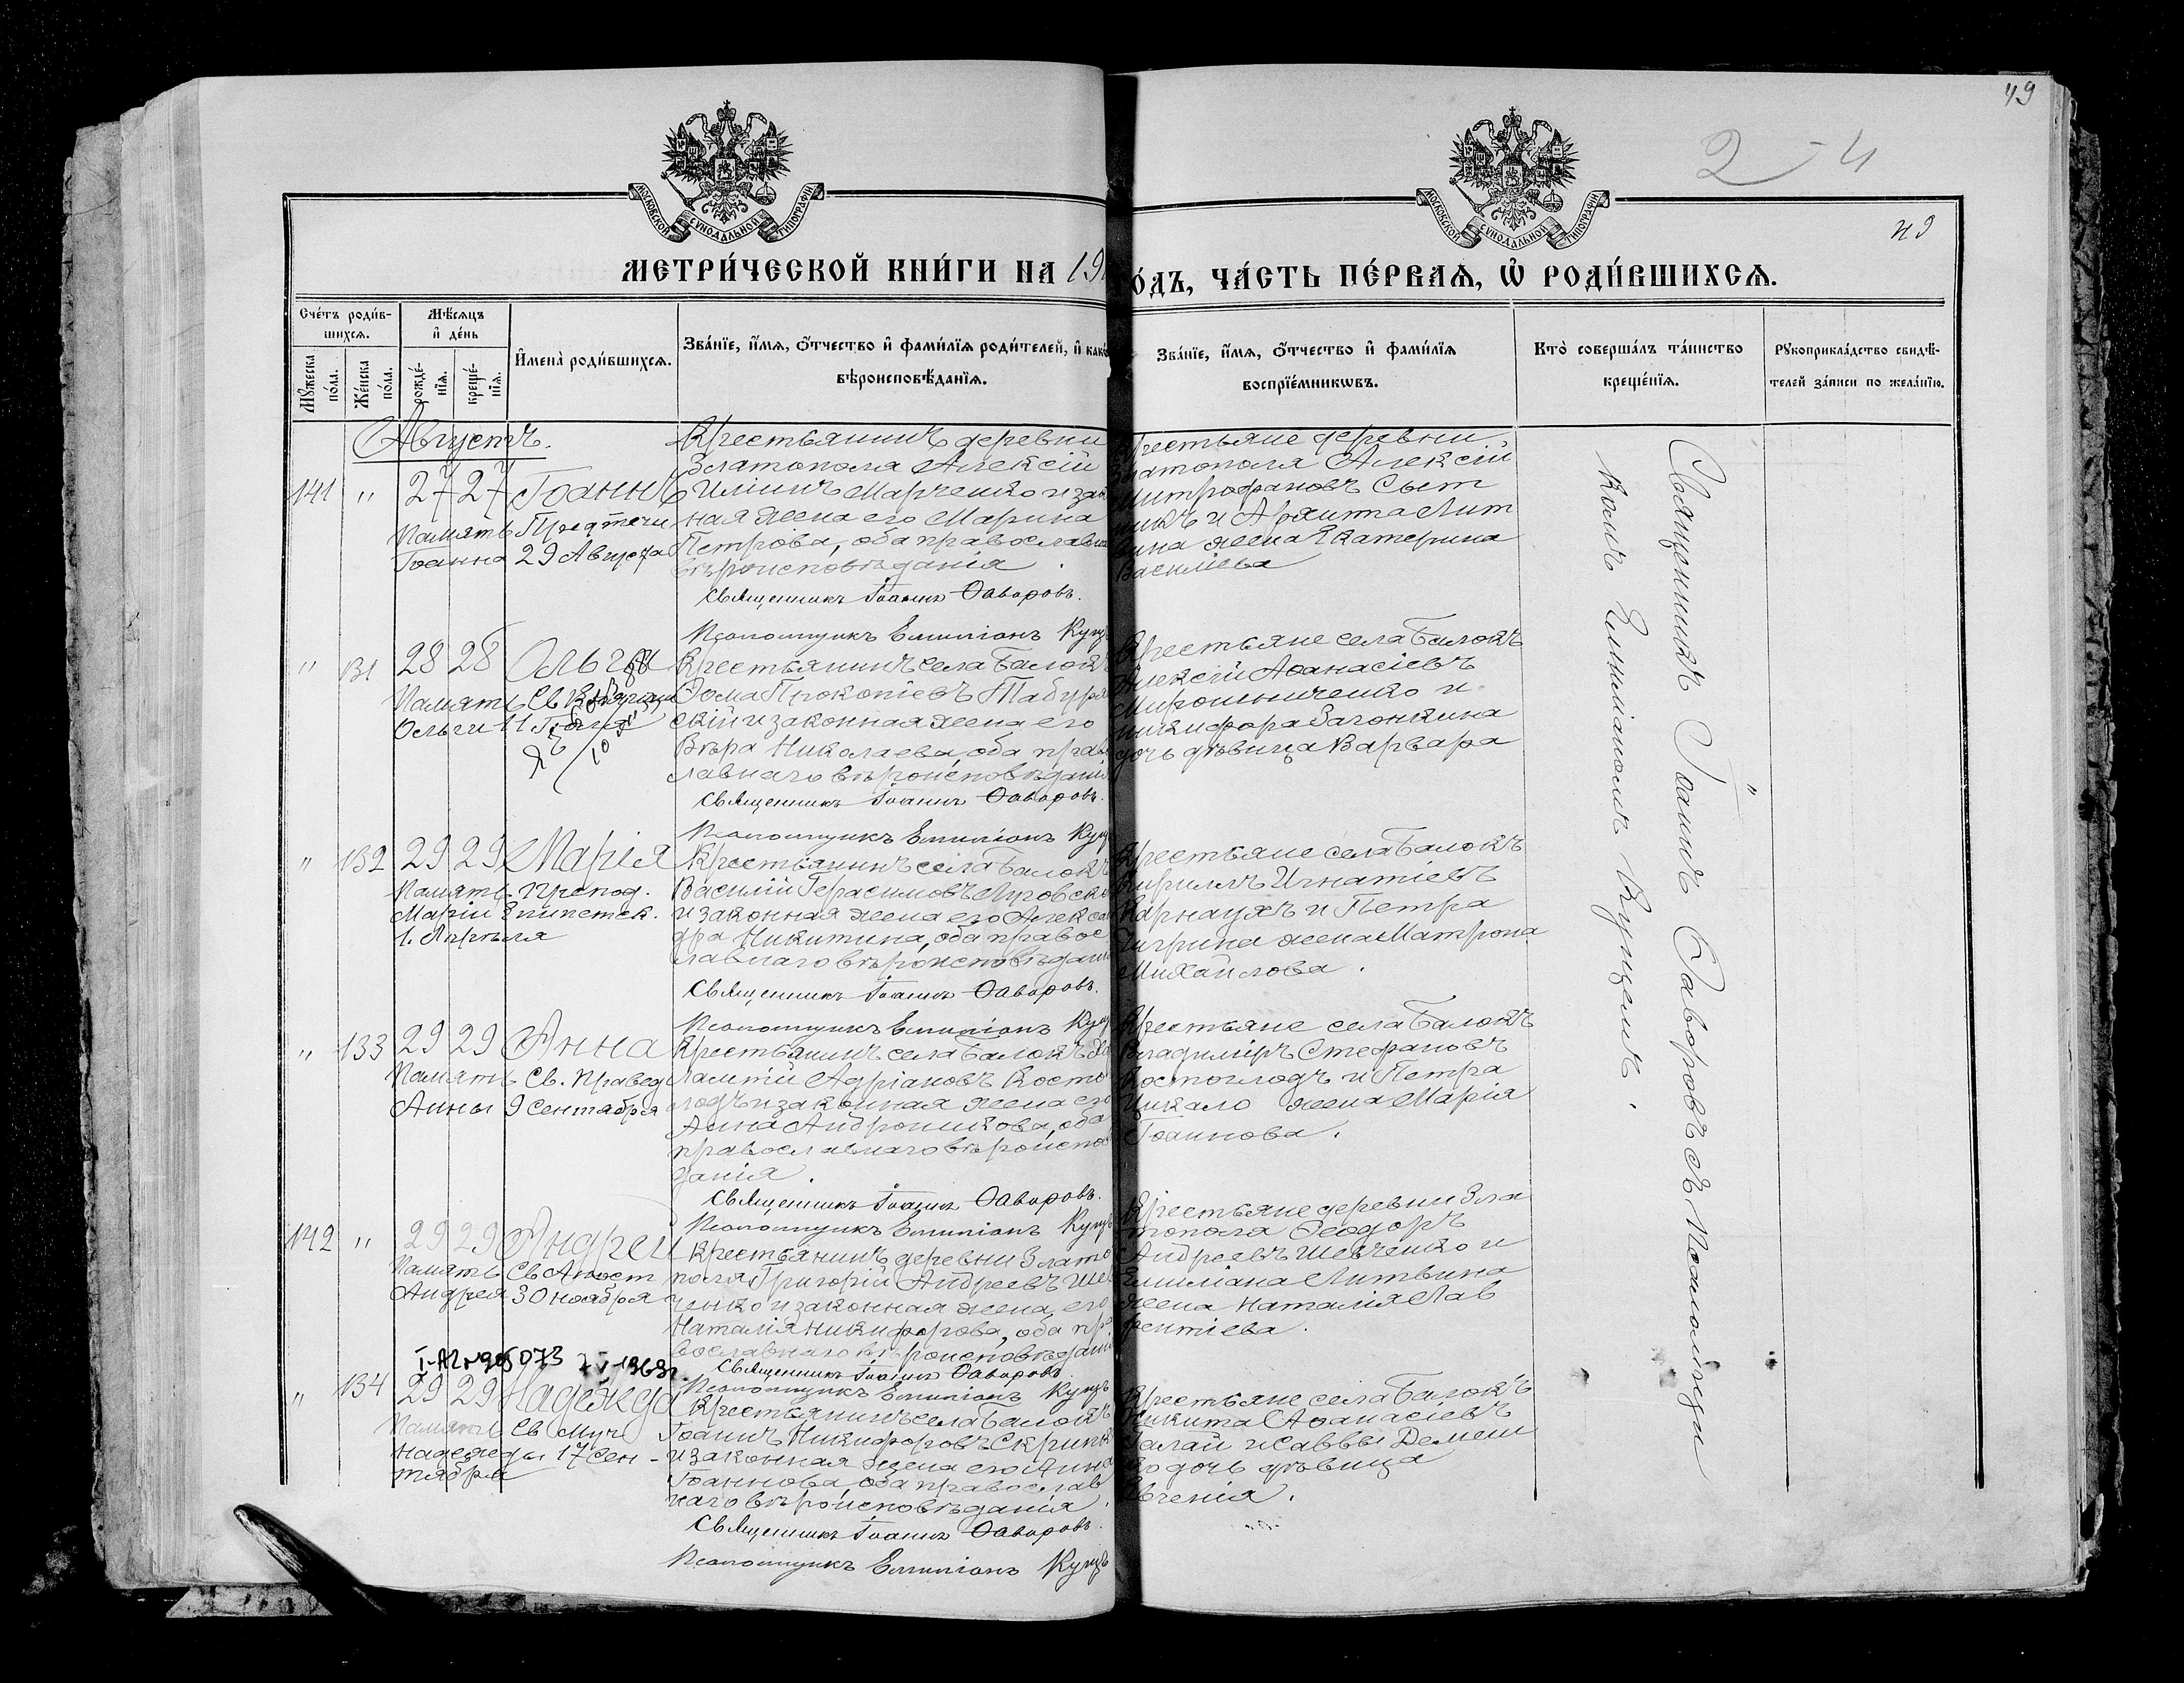 49
2 - 4
49
МОСКОВСКОЙ СѴНОДАЛЬНОЙ ТИПОГРАФІИ
МОСКОВСКОЙ СѴНОДАЛЬНОЙ ТИПОГРАФІИ
МЕТРИ́ЧЕСКОЙ КНИ́ГИ НА 191
О́ДЪ, ЧА́СТЬ ПЕ́РВАѦ, Ѡ҆ РОДИ́ВШИХСѦ.
Сче́тъ роди́в-
шихсѧ.
Мꙋ́жеска
по́ла.
Же́нска
по́ла.
Мѣ́сѧцъ
и҆ де́нь
рожде́-
нїѧ.
креще́-
нїѧ.
И҆мена̀ роди́вшихсѧ.
Зва́нїе, и҆́мѧ, ѻ҆́тчество и҆ фами́лїѧ роди́телей, и҆ како́
вѣроисповѣ́данїѧ.
Зва́нїе, и҆́мѧ, ѻ҆́тчество и҆ фами́лїѧ
воспрїе́мникѡвъ.
Кто̀ соверша́лъ та́инство
креще́нїѧ.
Рꙋкоприкла́дство свидѣ́-
телей за́писи по жела́нїю.
Августъ.
141 " 27 27 Іоаннъ
Память Предтечи
Іоанна 29 Августа
Крестьянинъ деревни
Златополя Алексій
Иліинъ Марченко и зак
ная жена его Марина
Петрова, оба православна
вѣроисповѣданія.
Священникъ Іоаннъ Ѳаворовъ.
Псаломщикъ Емиліанъ Купц
рестьяне деревни
латополя Алексій
Митрофановъ Сыт
никъ и Архипа Лит
вина жена Екатерина
Василіева
" 131 28 28 Ольга
Память Св. Княгини
Ольги 11 Іюля
Крестьянинъ села Балокъ
Ѳома Прокопіевъ Табур
скій и законная жена его
Вѣра Николаева, оба прав
лавнаго вѣроисповѣданія
Священникъ Іоаннъ Ѳаворовъ.
Псаломщикъ Емиліанъ Купц
Крестьяне села Балокъ
Алексій Аѳанасіевъ
Мирошниченко и
никифора Загонкина
дочь дѣвица Варвара
" 132 29 29 Марія
Память препод.
Маріи Египетск.
1. Апрѣля
Крестьянинъ села Балокъ
Василій Герасимовъ
и законная жена его Алексан
дра Никитина, оба правос
лавнаго вѣроисповѣдані
Священникъ Іоаннъ Ѳаворовъ.
Псаломщикъ Емиліанъ Купц
Крестьяне села Балокъ
Кириллъ Игнатіевъ
Карнаухъ и Петра
Чигрина жена Матрона
Михайлова.
" 133 29 29 Анна
Память Св. Правед
Анны 9 Сентября
Крестьянинъ села Балокъ Ха
лампій Адріановъ Косто
лодъ и законная жена его
Анна Андроникова, оба
православнаго вѣроиспов
данія.
Священникъ Іоаннъ Ѳаворовъ.
Псаломщикъ Емиліанъ Купц
Крестьяне села Балокъ
Владиміръ Стефановъ
Костоглодъ и Петра
Цикало жена Марія
Іоаннова.
142 " 29 29 Андрей
Память Св Апост
Андрея 30 ноября
Крестьянинъ деревни Злато
поля Григорій Андреевъ Шев
ченко и законная жена его
Наталія никифорова, оба пра
вославнаго вѣроисповѣдані
Священникъ Іоаннъ Ѳаворовъ
Псаломщикъ Емиліанъ Купцъ
Крестьяне деревни Зла
тополя Ѳеодоръ
Андреевъ Шевченко и
Емиліана Литвина
жена Наталія Лав
рентіева.
" 134 29 29 Надежда
Память Св Муч
надежды 17 Сен-
тября
Крестьянинъ села Балокъ
Іоаннъ Никифоровъ Скрипк
и законная жена его Анна
Іоаннова, оба православ
наго вѣроисповѣданія.
Священникъ Іоаннъ Ѳаворовъ.
Псаломщикъ Емиліанъ Купцъ
Крестьяне села Балокъ
Никита Аѳанасіевъ
Галай и Саввы Демеш
ко дочь дѣвица
Евгенія.
Священникъ Іоаннъ Ѳаворовъ съ Псаломщи
комъ Емиліаномъ Купцемъ.